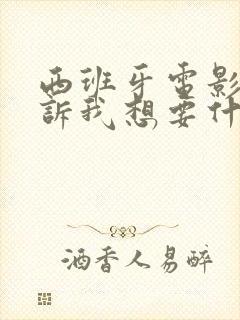 西班牙電影
訴我想要什
酒香人易醉